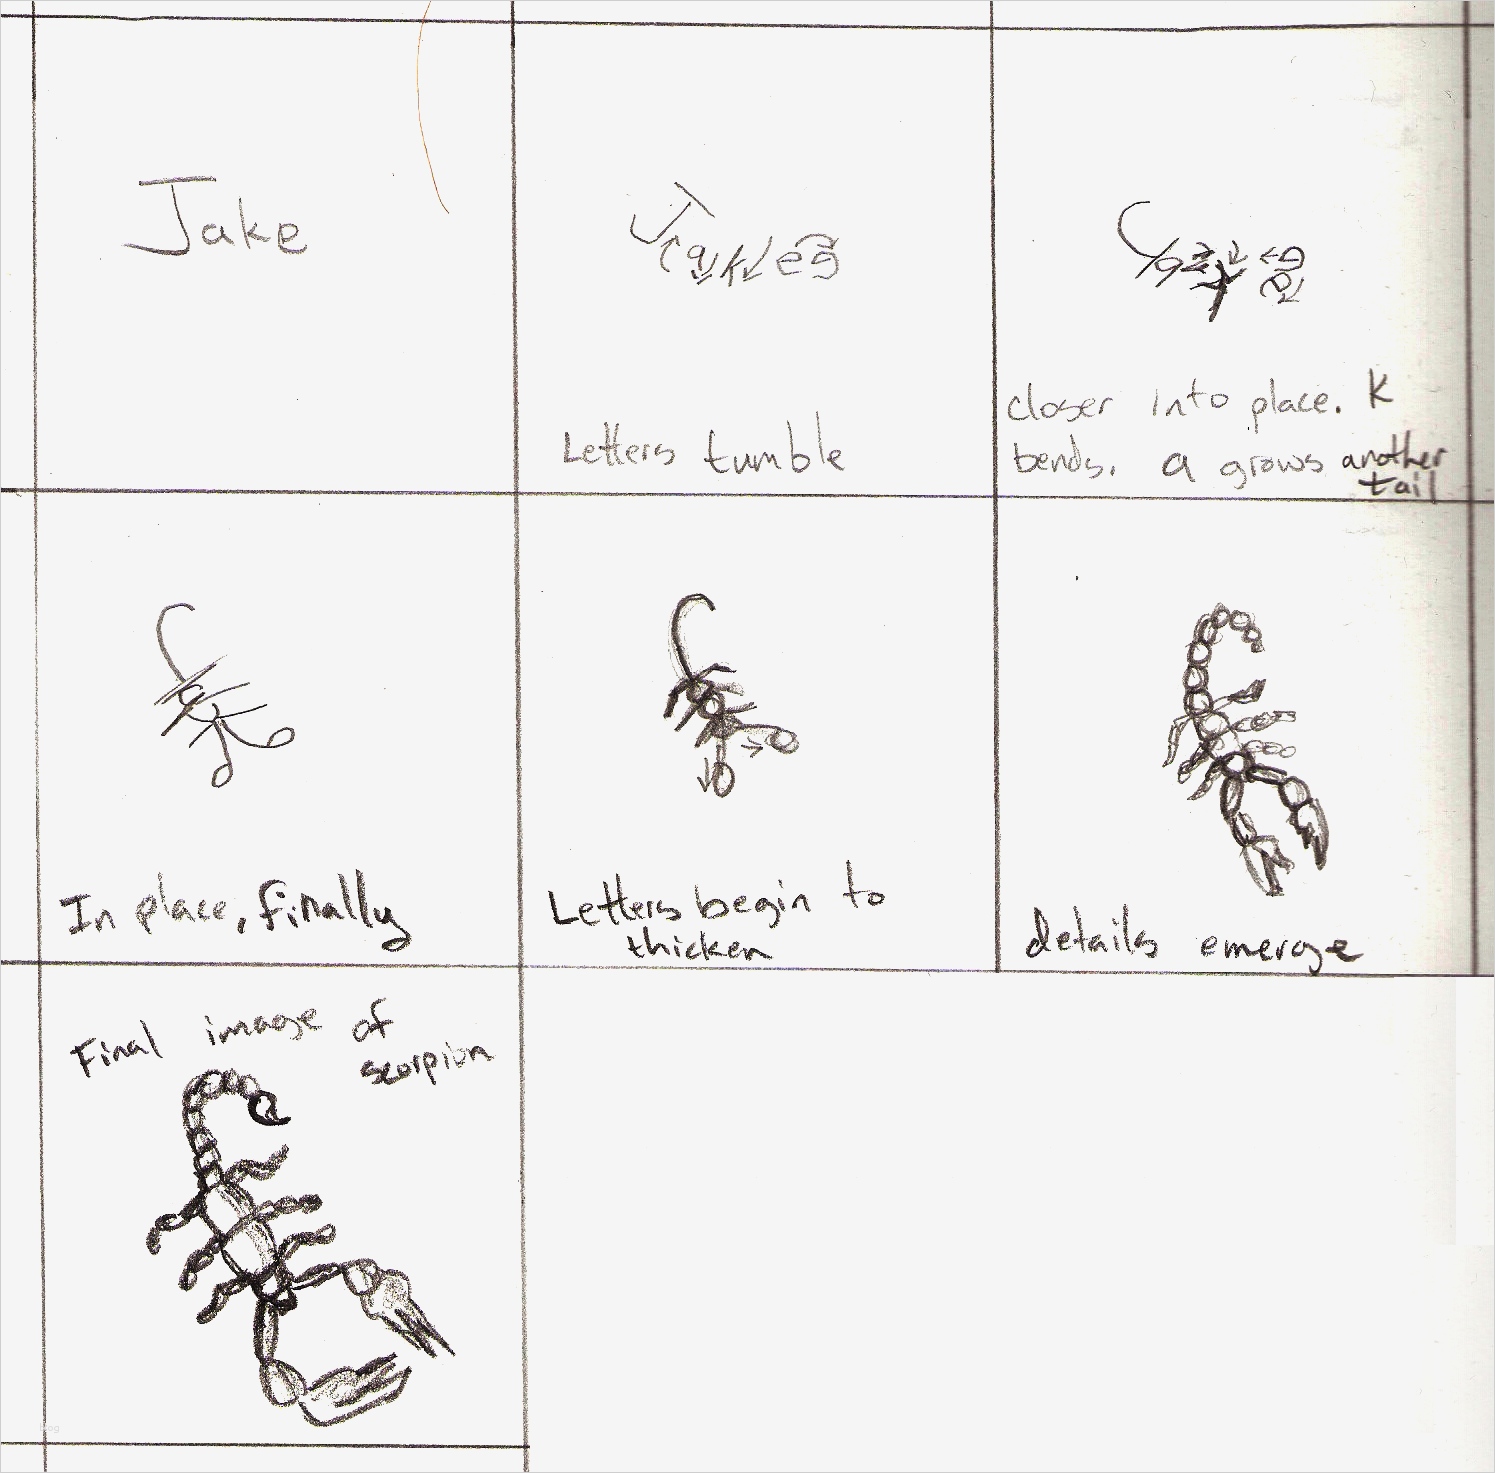 Jake
Letters tumble
closer into place. K
bends. a grows another
tail
In place, finally
Letters begin to
thicken
details emerge
Final image of
scorpion